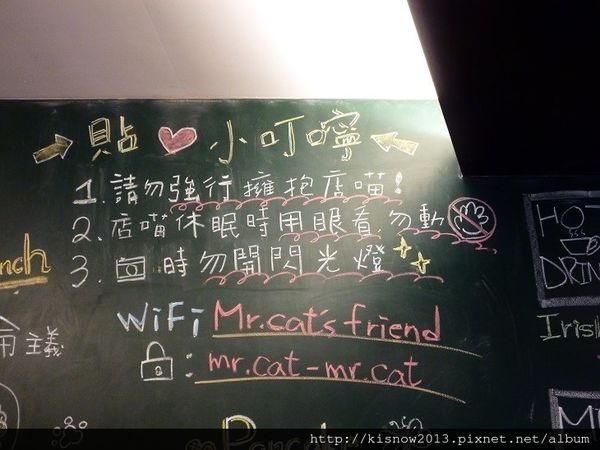 貼♥小叮嚀
1.請勿強行擁抱店喵!
2.店喵休眠時用眼看勿動
3. 時勿開閃光燈
WiFi Mr.cat's friend
: mr.cat-mr.cat
nch
義
HOT
DRIN
Iris
Pancake
http://kisnow2013.pixnet.net/album